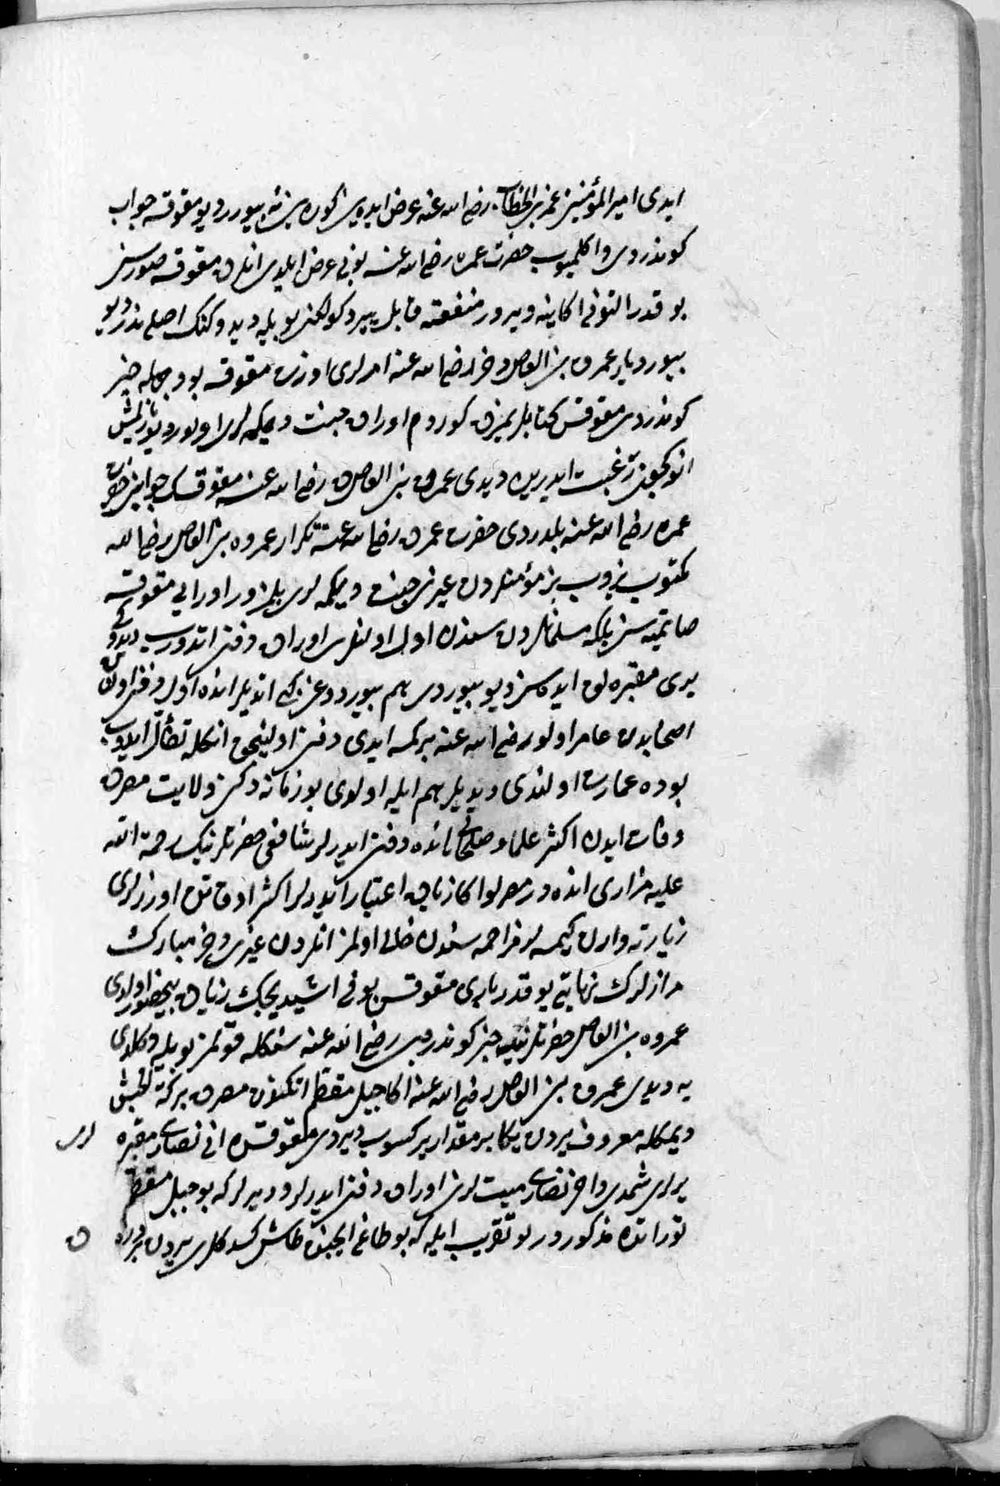 ایدی امیر المؤمنین عمر بن الخطاب رضی الله عنه عرض ایده‌یین کوره‌یین نه بیورر دیو مقوقسه جواب
کوندردی واکلمیوب حضرت عمره رضی الله عنه بونی عرض ایلدی انلر مقوقسه صورسن
بو قدر التونی اکا نیه ویرور منفعته قابل یر دکولکن بویله دیدوکنک اصلی ندر دیو
بیوردیلر عمرو بن العاص دخی رضی الله عنه امرلری اوزره مقوقسه بو وجهله خبر
کوندردی مقوقس کتابلریمزده کوردم اوراده جنت دیکمه‌لری اولور دیو یازلمش
انوکیچون رغبت ایدرین دیدی عمرو بن العاص رضی الله عنه مقوقسک جوابن حضرت
عمره رضی الله عنه بلدردی حضرت عمر رضی الله عنه تکرار عمرو بن العاص رضی الله
مکتوب یازوب بز مؤمنلردن غیری جنت دیکمه‌لری بلمزوز اورایی مقوقسه
صاتمیه‌سز بلکه مسلمانلردن سزدن اول اولنلری اوراده دفن اتدورب
یری مقبره‌لق ایده‌سز دیو بیوردی هم بیوردوغی کبی اتدیلر انده اول دفن اولنان
اصحابدن عامر اولو رضی الله عنه بر کمسه ایدی دفن اولنیجق انکله تفأل ایدوب
بوده عمارت اولندی دیدیلر هم ایله اولدی بو زمانه دکین ولایت مصرده
وفات ایدن اکثر علما و صلحایی انده دفن ایدرلر شافعی حضرتلرینک رحمة الله
علیه مزاری انده در مصرلو اکا زیاده اعتبار ایدرلر اکثر اوقاتده اوزرلری
زیارته وارن کیمسه‌لر مزاحمه‌سندن خالی اولمز انلردن غیری دخی مبارک
مزارلرک نهایتی یوقدر باری مقوقس بونی اشیدیجک زیاده بیحضور اولدی
عمرو بن العاص حضرتلرینه خبر کوندردی رضی الله عنه سنکله قولمز بویله دکلدی
یه دیدی عمرو بن العاص رضی الله عنه اکا جبل مقطم اتکنده مصرده برکة الحبش
دیمکله معروف یردن یکا بر مقدار یر کسوب ویردی مقوقس انی نصارایه مقبره لری
یرلری شمدی دخی نصارا میتلرن اوراده دفن ایدرلر و دیرلر که بو جبل مقطم
توراتده مذکوردر بو تقریب ایله که بو طاغی ایچنده طاش کسدکلری یردن